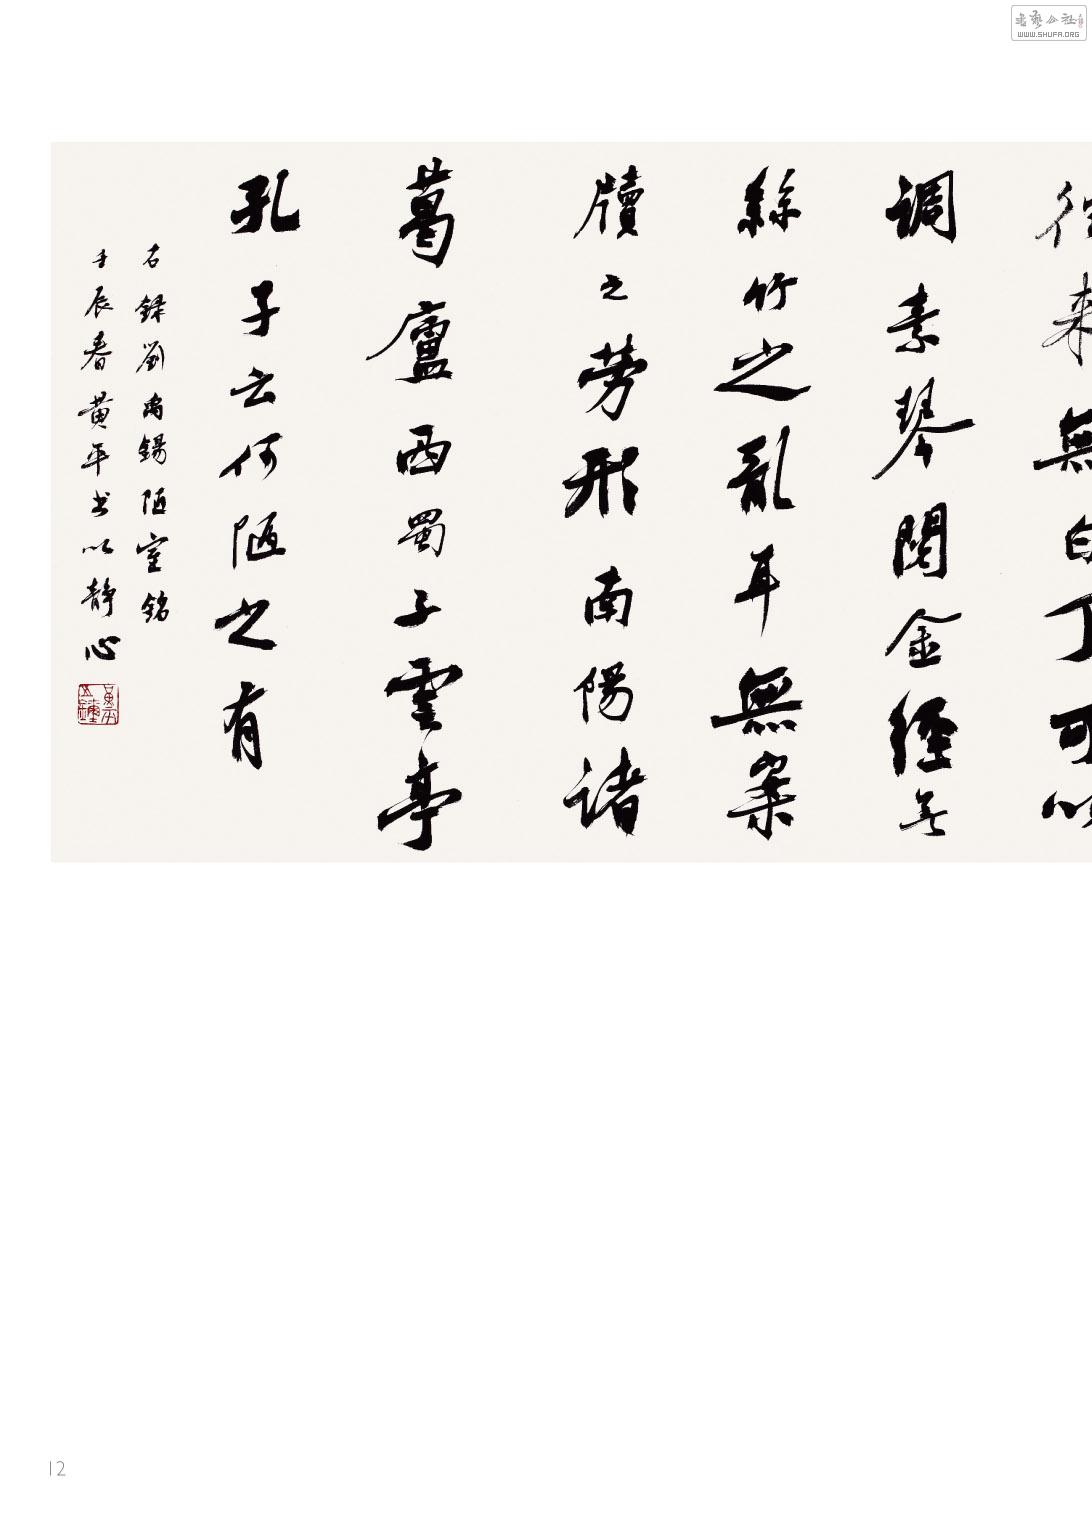 往来無白丁可以
调素琴閱金經無
絲竹之亂耳無案
牘之劳形南陽諸
葛廬西蜀子雲亭
孔子云何陋之有
右録劉禹錫陋室銘
壬辰春黄平书以静心
WWW.SHUFA.ORG
12